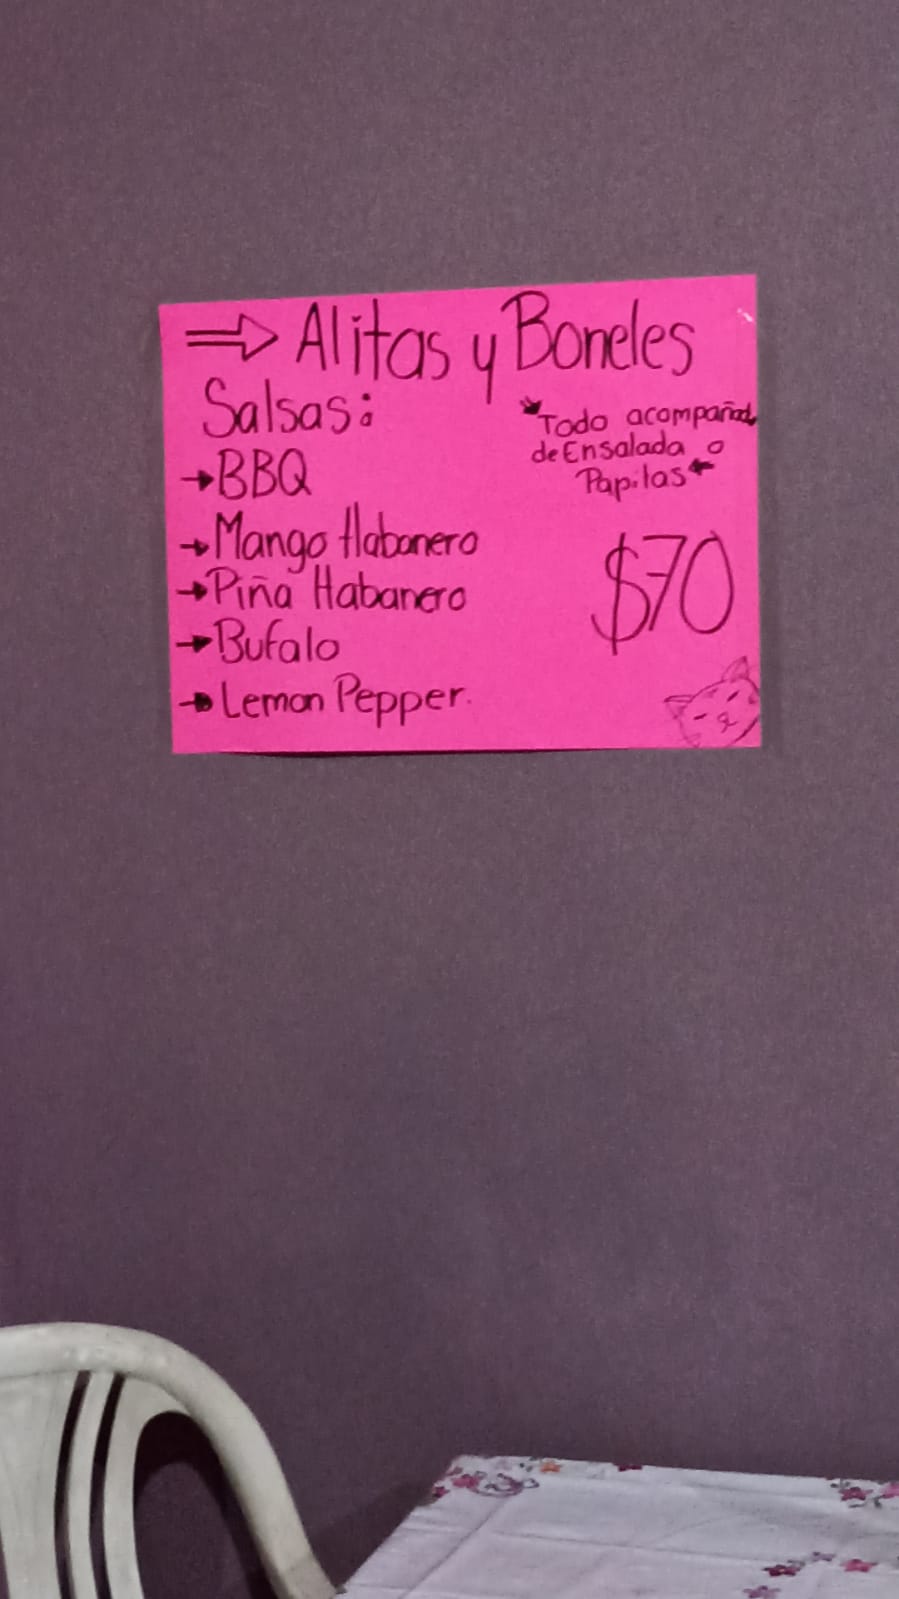 Alitas y Boneles
Salsas:
BBQ
Mango Habanero
Piña Habanero
Bufalo
Lemon Pepper.
Todo acompañad
de Ensalada o
Papitas
$70